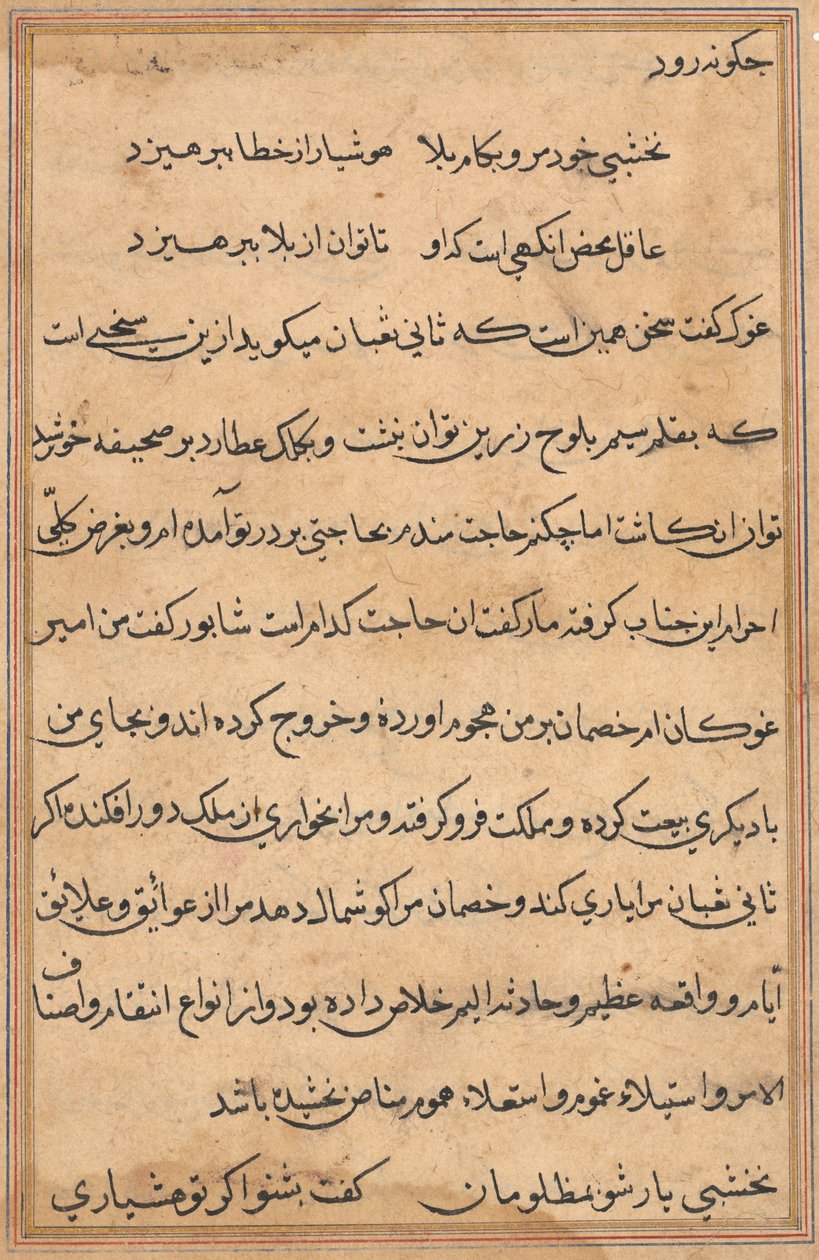 چكونه رود
نخشبي خود مرو بكام بلا هوشيار از خطا بپرهيزد
عاقل محض انكهي است كه او تا توان از بلا بپرهيزد
غوك كفت سخن همين است كه ثاني ثعبان ميكويد ازين سخنے است
كه بقلم سيم بلوح زرين توان نبشت و بكلك عطارد بر صحيفه خورشيد
توان انكاشت اما چكنم حاجت مندم بحاجتي بر در تو آمده ام و بغرض كلّي
احرام اين جناب كرفته مار كفت ان حاجت كدام است شابور كفت من امير
غوكان ام خصمان بر من هجوم اورده و خروج كرده اند و بجاي من
با ديكري بيعت كرده و مملكت فرو كرفته و مرا بخواري ازان ملك دور افكنده اكر
ثاني ثعبان مرا ياري كند و خصمان مرا كوشمال دهد مرا از عوائق و علائق
ايّام و واقعه عظيم و حادثه اليم خلاص داده بود و از انواع انتقام و اصناف
الام و استيلاء غموم و استعلاء هموم مناص بخشيده باشد
نخشبي يار شو بمظلومان كفت بشنو اكر تو هشياري